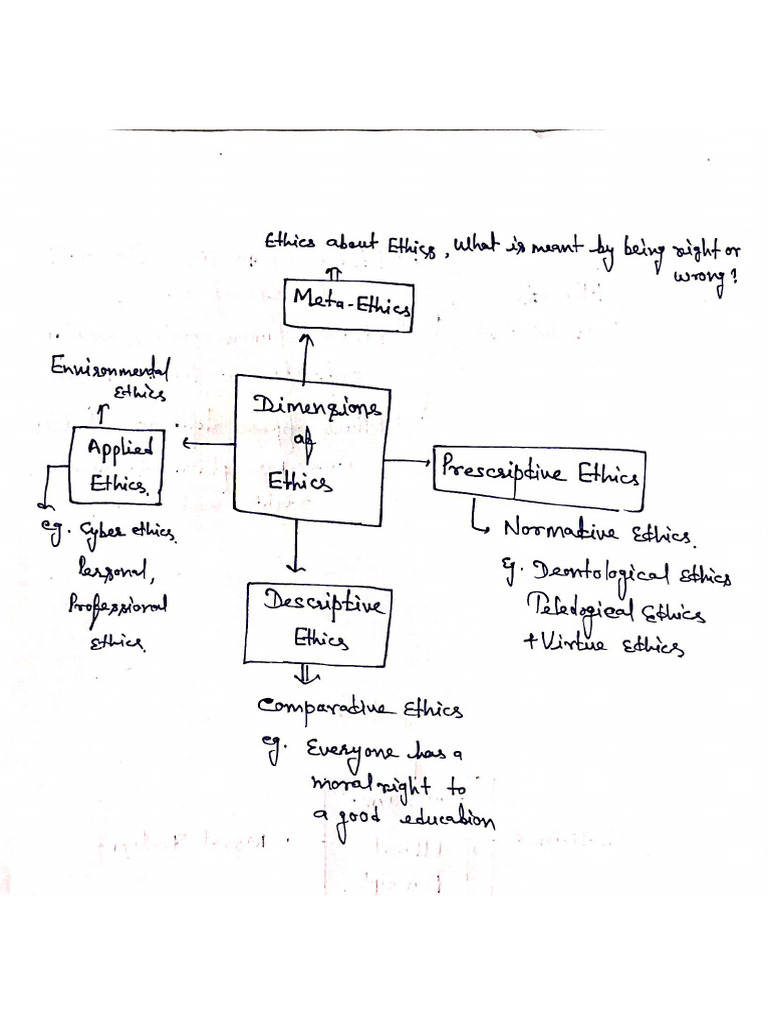 Ethics about Ethics, What is meant by being right or
wrong?
Meta-Ethics
Environmental
Ethics
Applied
Ethics.
eg. Cyber ethics.
Personal,
Professional
ethics.
Dimensions
of
Ethics
Prescriptive Ethics
Normative Ethics.
eg. Deontological Ethics
Teleological Ethics
+ Virtue Ethics
Descriptive
Ethics
Comparative Ethics
eg. Everyone has a
moral right to
a good education